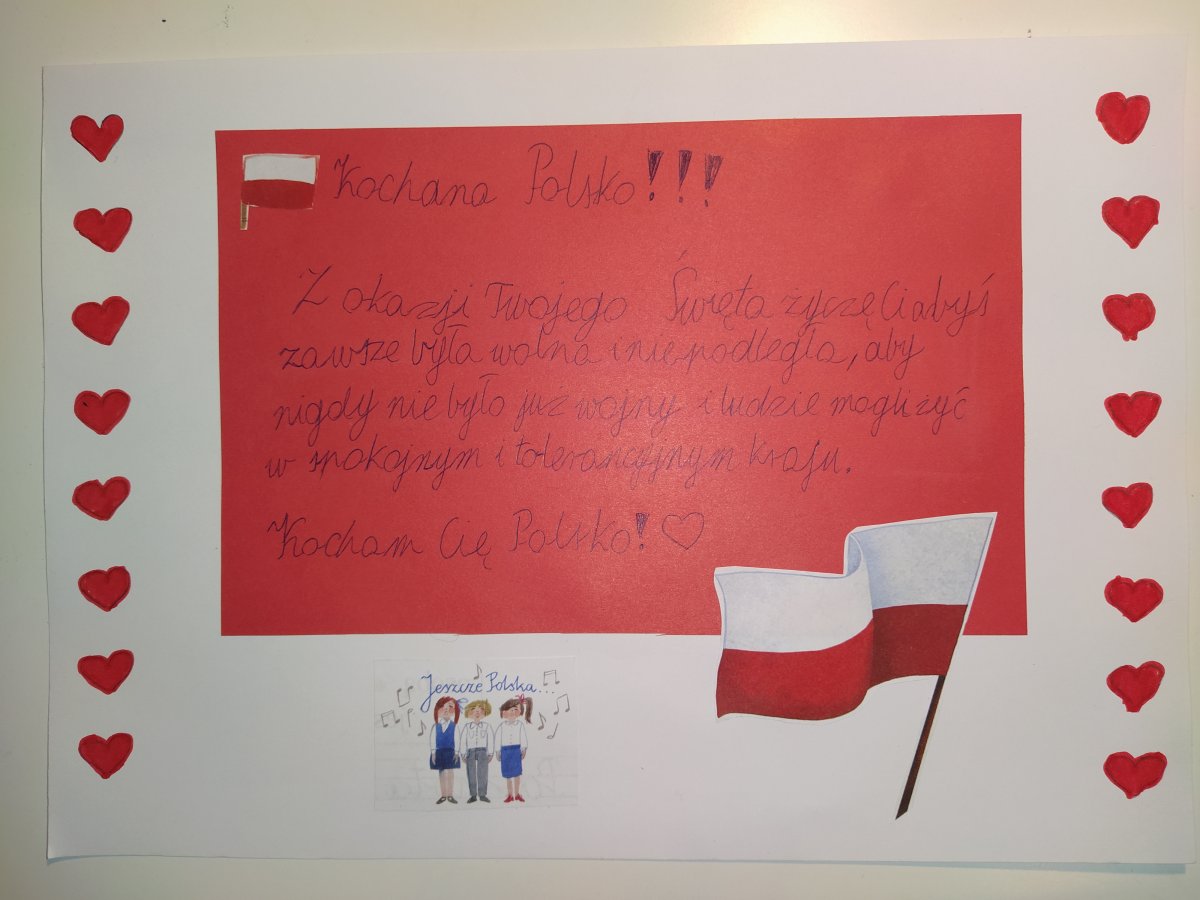 Kochana Polsko!!!
Z okazji Twojego Święta życzę Ci abyś
zawsze była wolna i niepodległa, aby
nigdy nie było już wojny i ludzie mogli żyć
w spokojnym i tolerancyjnym kraju.
Kocham Cię Polsko!
Jeszcze Polska...